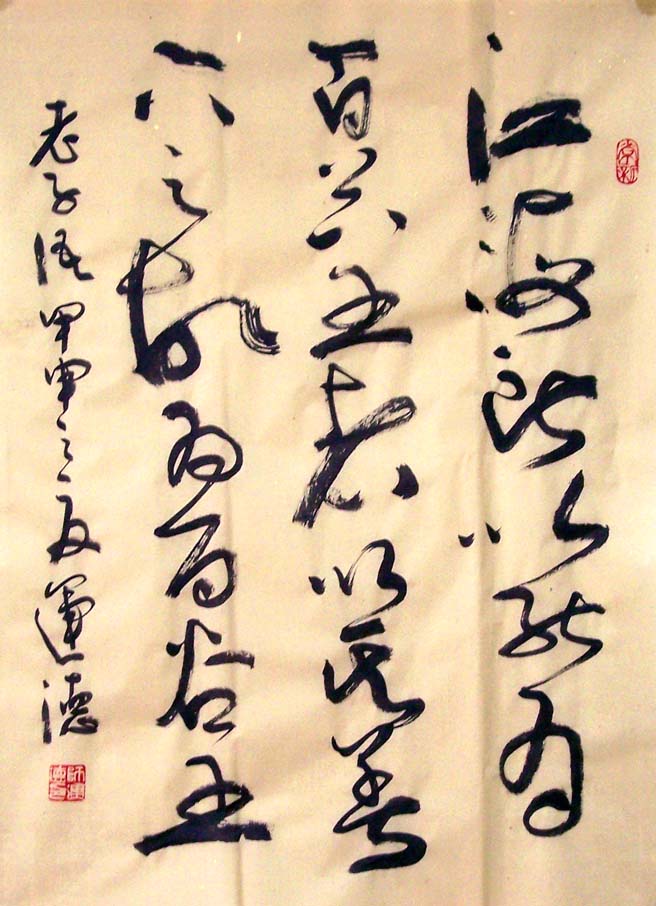 江海所以能為
百谷王者以其善
下之故為百谷王
老子語甲申之夏運德